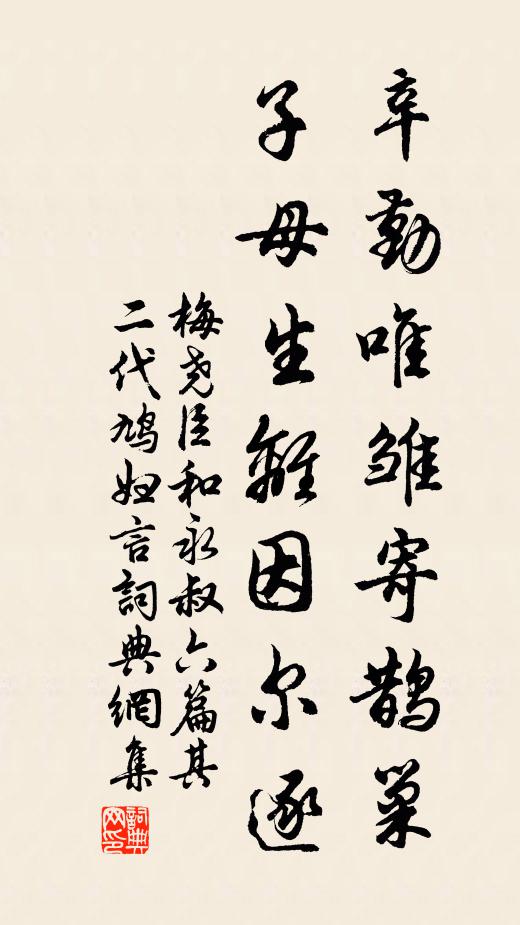 辛勤唯雏寄鹊巢
子母生離因尔逐
梅尧臣和永叔六篇其
二代鳩妇言詞典網集
詞典
网印